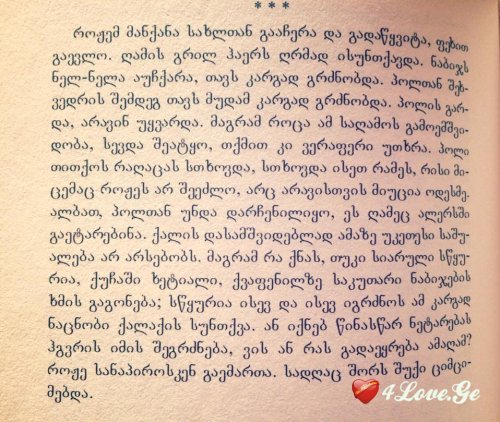 * * *
როჟემ მანქანა სახლთან გააჩერა და გადაწყვიტა, ფეხით
გაევლო. ღამის გრილ ჰაერს ღრმად ისუნთქავდა. ნაბიჯს
ნელ-ნელა აუჩქარა, თავს კარგად გრძნობდა. პოლთან შეხ-
ვედრის შემდეგ თავს მუდამ კარგად გრძნობდა. პოლის გარ-
და, არავინ უყვარდა. მაგრამ როცა ამ საღამოს გამოემშვი-
დობა, სევდა შეატყო, თქმით კი ვერაფერი უთხრა. პოლი
თითქოს რაღაცას სთხოვდა, სთხოვდა ისეთ რამეს, რისი მი-
ცემაც როჟეს არ შეეძლო, არც არავისთვის მიუცია ოდესმე.
ალბათ, პოლთან უნდა დარჩენილიყო, ეს ღამეც ალერსში
გაეტარებინა. ქალის დასამშვიდებლად ამაზე უკეთესი საშუ-
ალება არ არსებობს. მაგრამ რა ქნას, თუკი სიარული სწყუ-
რია, ქუჩაში ხეტიალი, ქვაფენილზე საკუთარი ნაბიჯების
ხმის გაგონება; სწყურია ისევ და ისევ იგრძნოს ამ კარგად
ნაცნობი ქალაქის სუნთქვა. ან იქნებ წინასწარ ნეტარებას
ჰგვრის იმის შეგრძნება, ვის ან რას გადაეყრება ამაღამ?
როჟე სანაპიროსკენ გაემართა. სადღაც შორს შუქი ციმცი-
მებდა.
4Love.Ge